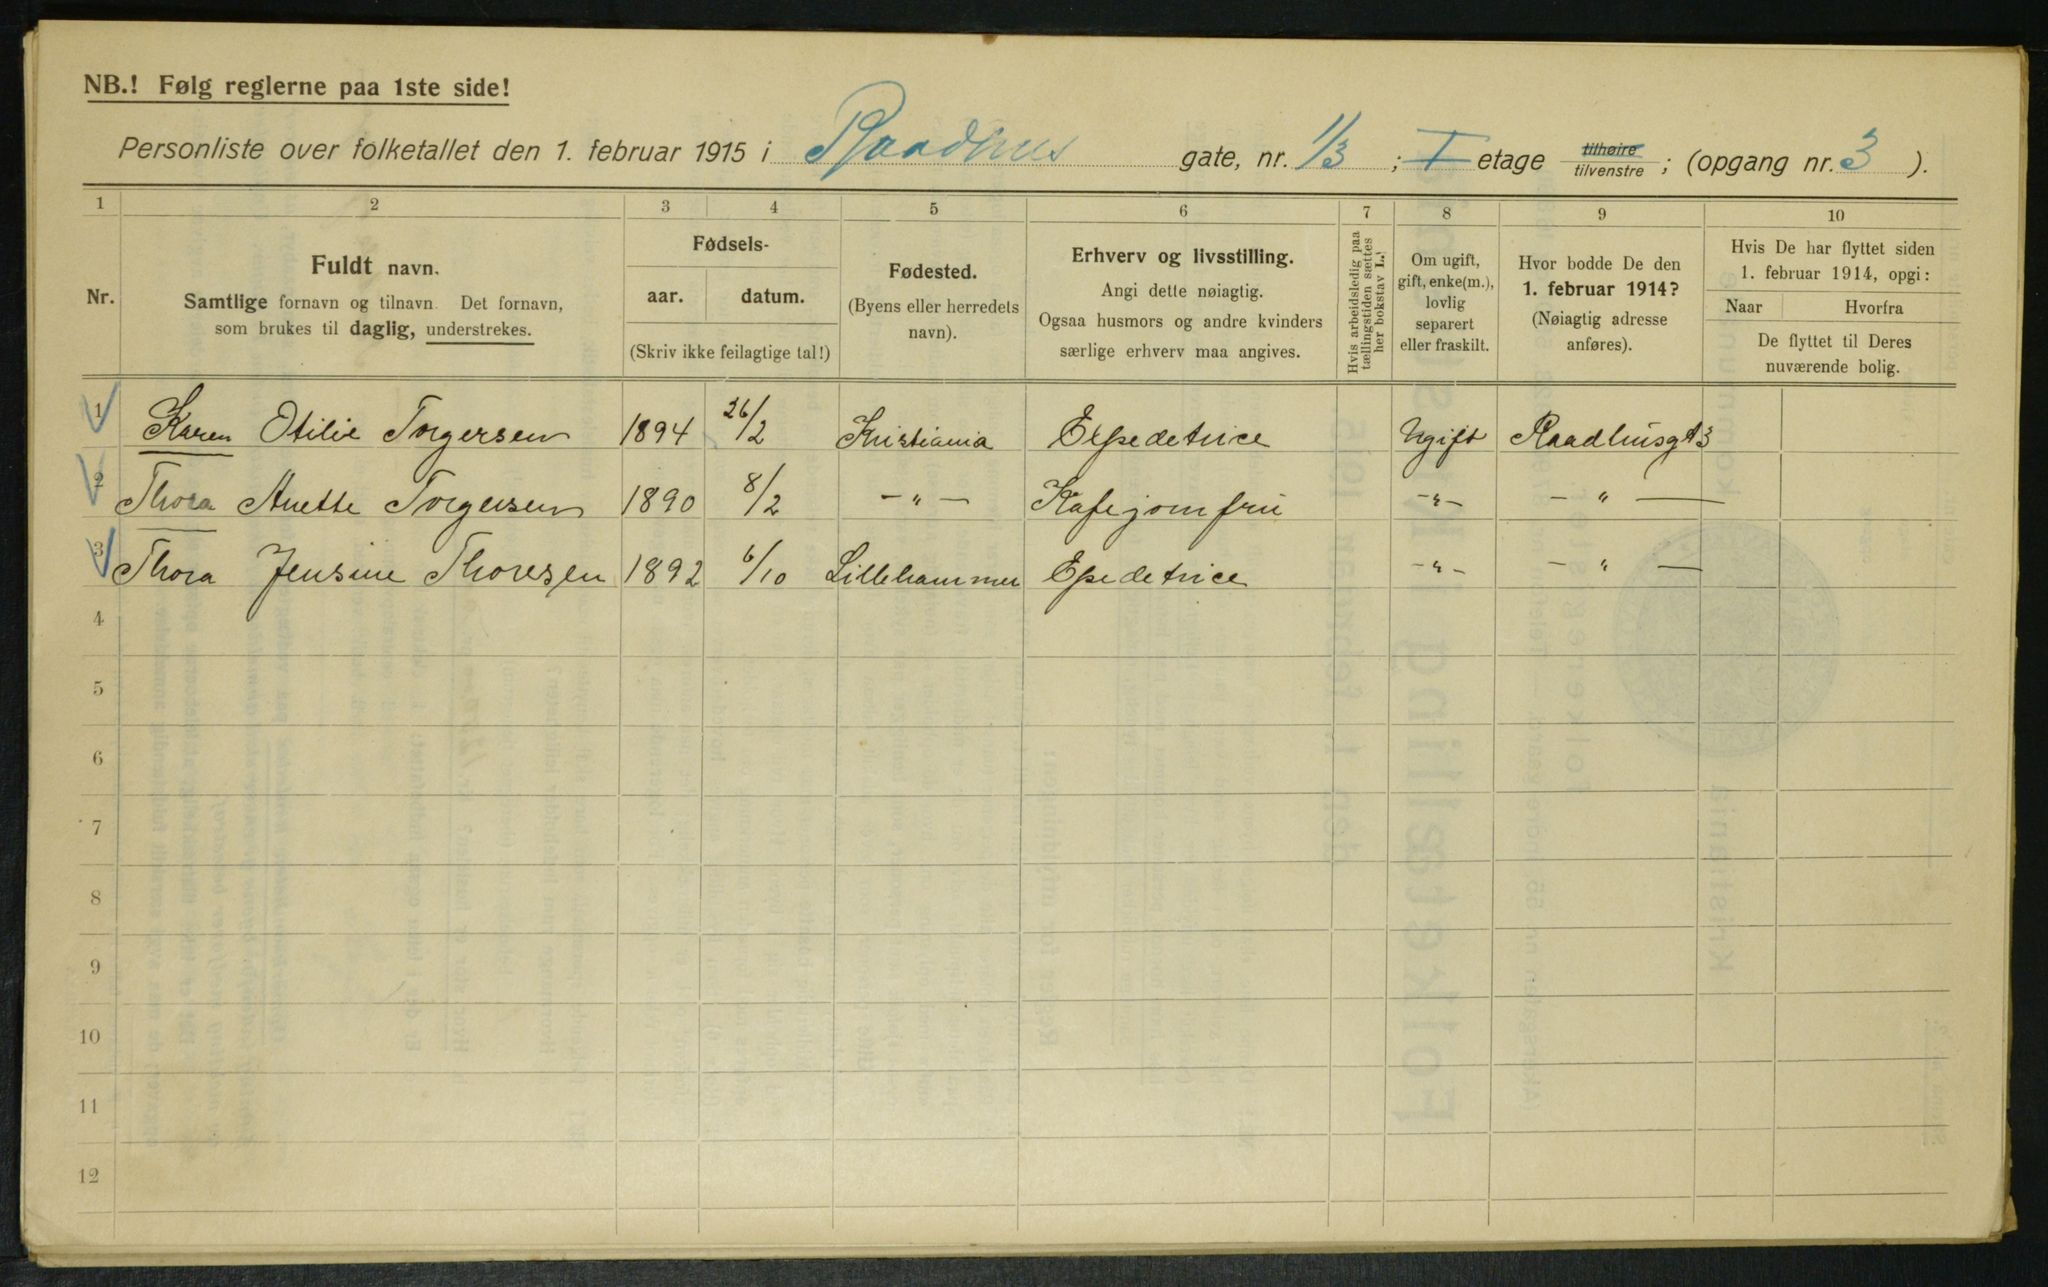 NB.! Følg reglerne paa 1ste side!
Personliste over folketallet den 1. februar 1915 i Raadhus gate, nr. 1/3 ; I etage tilhøire tilvenstre ; (opgang nr. 3 ).
1 2 3 4 5 6 7 8 9 10
Nr.
Fuldt navn.
Samtlige fornavn og tilnavn. Det fornavn,
som brukes til daglig, understrekes.
Fødsels-
aar. datum.
(Skriv ikke feilagtige tal!)
Fødested.
(Byens eller herredets
navn).
Erhverv og livsstilling.
Angi dette nøiagtig.
Ogsaa husmors og andre kvinders
særlige erhverv maa angives.
Hvis arbeidsledig paa
tællingstiden sættes
her bokstav L.
Om ugift,
gift, enke(m.),
lovlig
separert
eller fraskilt.
Hvor bodde De den
1. februar 1914?
(Nøiagtig adresse
anføres).
Hvis De har flyttet siden
1. februar 1914, opgi:
Naar Hvorfra
De flyttet til Deres
nuværende bolig.
1 Karen Otilie Torgersen 1894 26/2 Kristiania Expedetrice Ugift Raadhusgt 3
2 Thora Anette Torgersen 1890 8/2 — " — Kafejomfru — " — — " —
3 Thora Jensine Thoresen 1892 6/10 Lillehammer Expedetrice — " — — " —
4
5
6
7
8
9
10
11
12